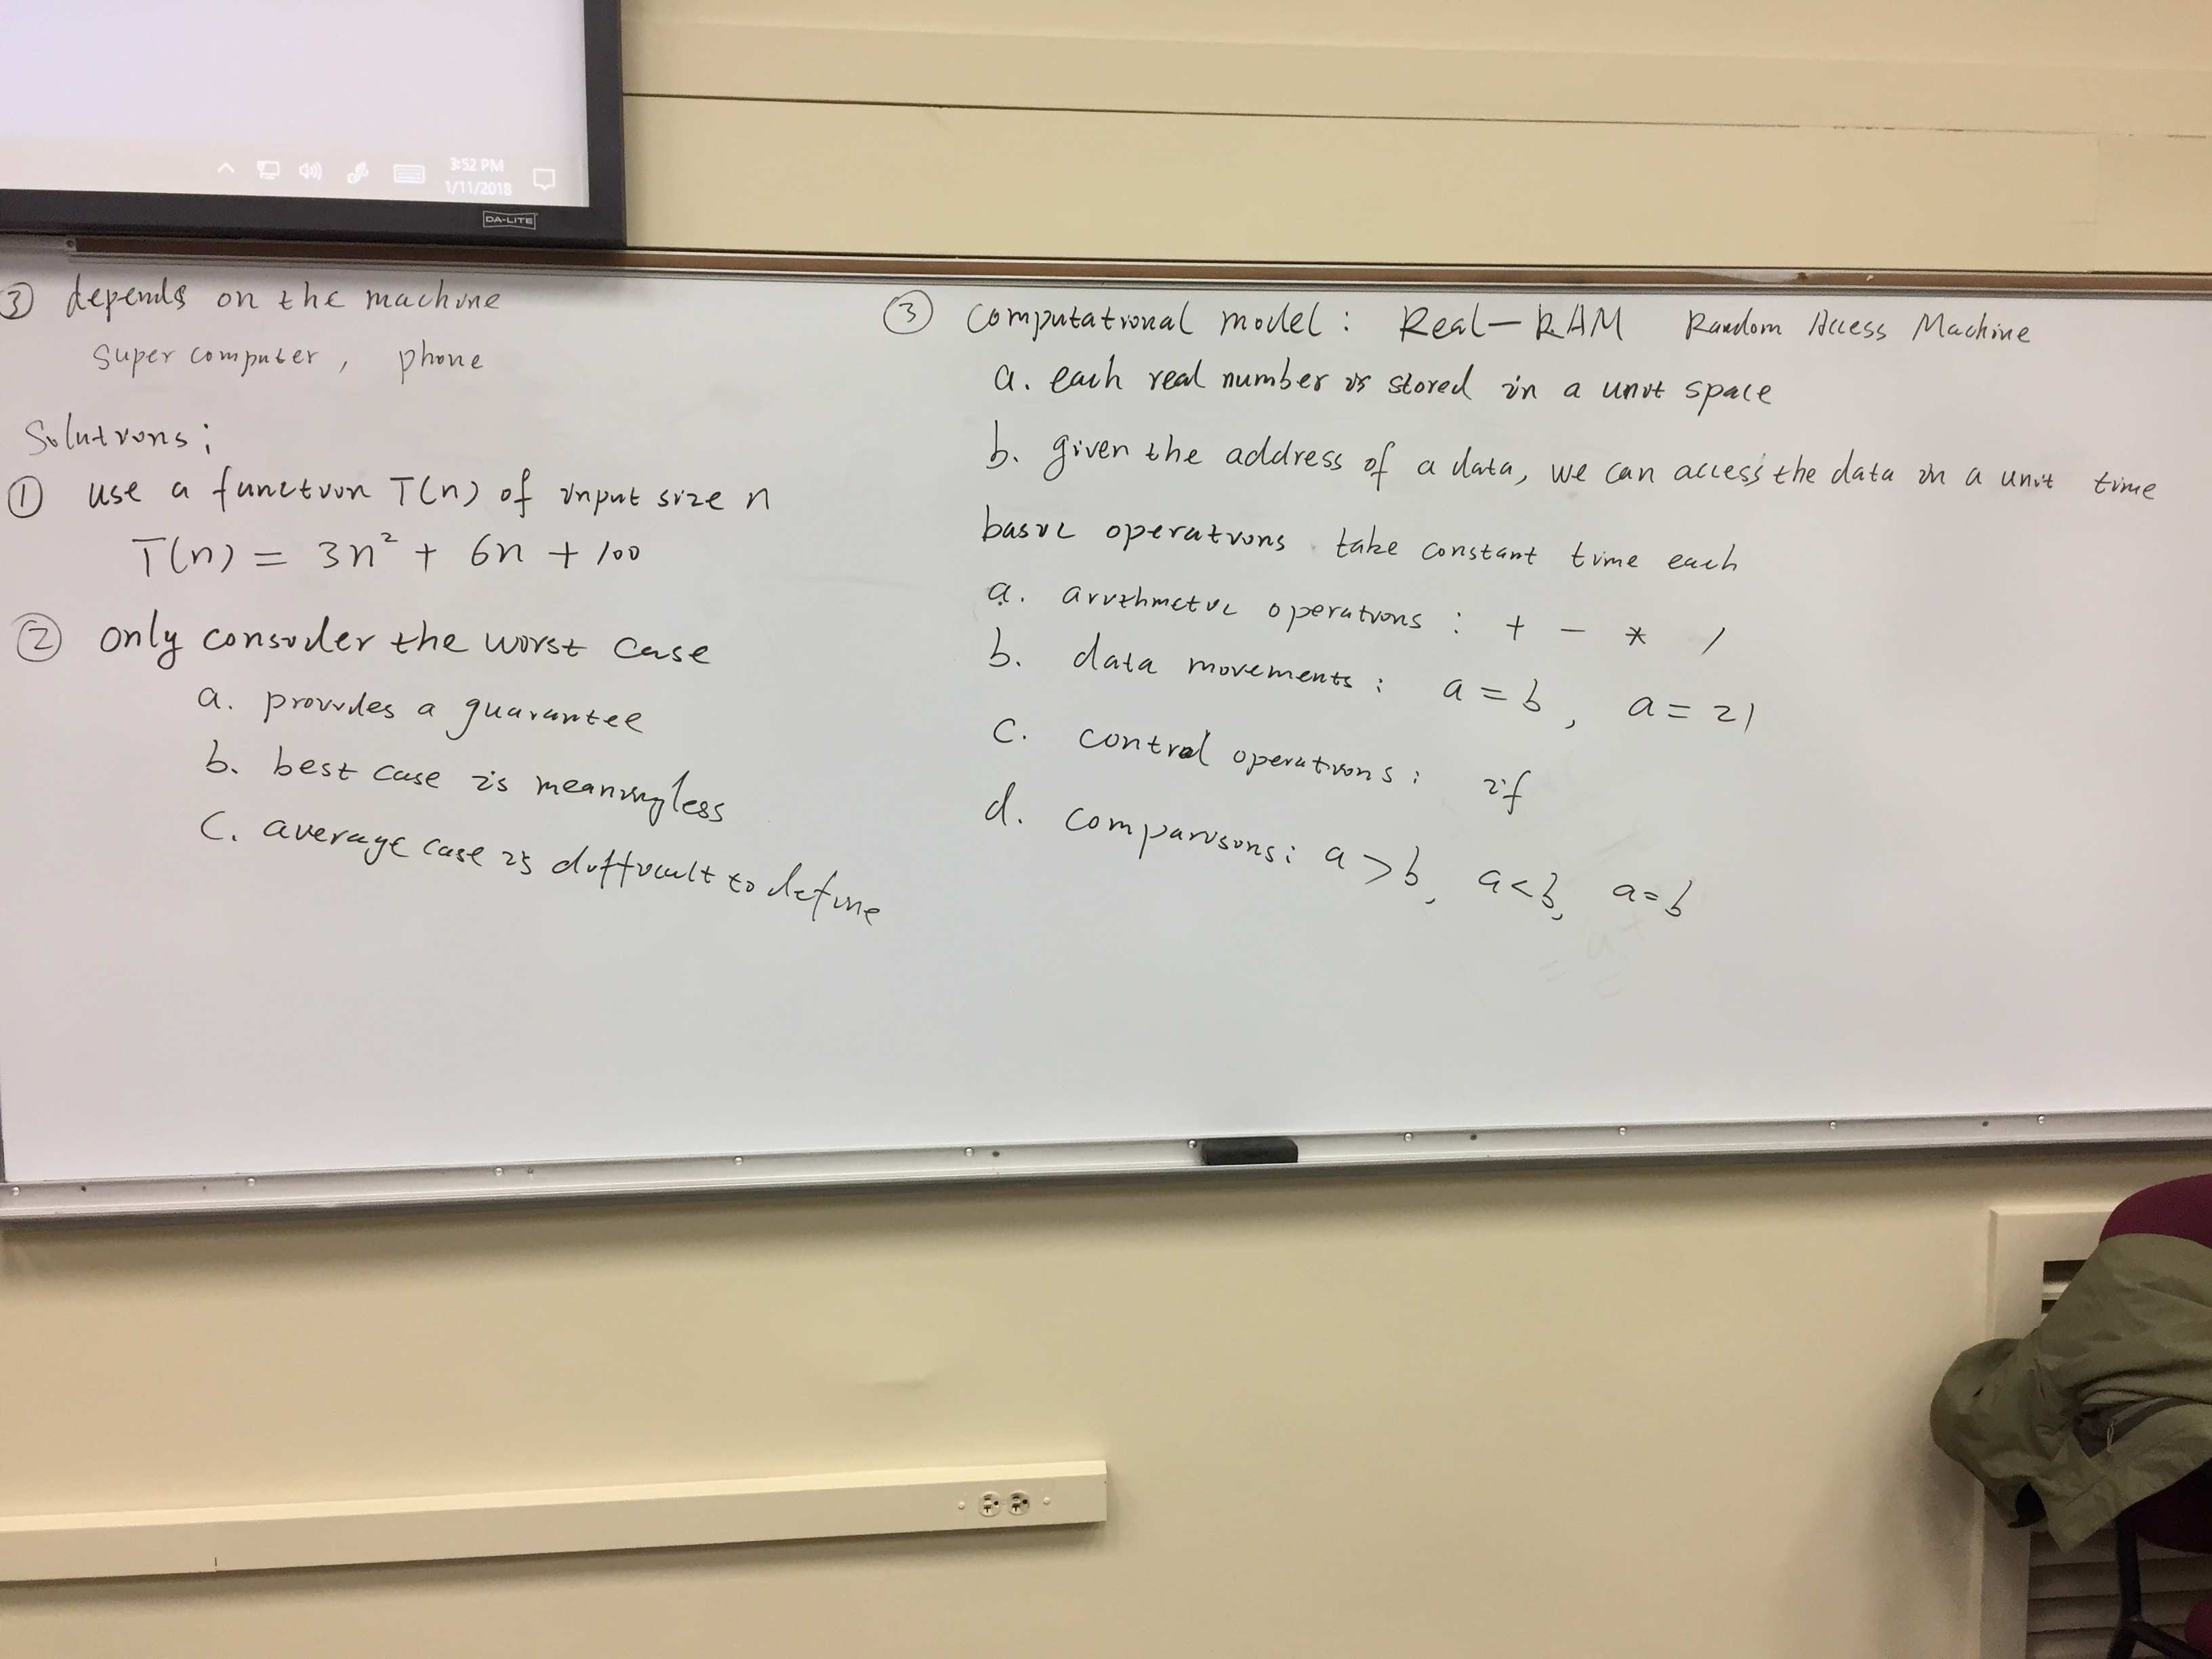 3:52 PM
1/11/2018
DA-LITE
③ depends on the machine
super computer, phone
Solutions:
① use a function T(n) of input size n
T(n) = 3n² + 6n + 100
② only consider the worst case
a. provides a guarantee
b. best case is meaningless
c. average case is difficult to define
③ computational model: Real-RAM Random Access Machine
a. each real number is stored in a unit space
b. given the address of a data, we can access the data in a unit time
basic operations take constant time each
a. arithmetic operations: + - * /
b. data movements: a = b, a = 21
c. control operations: if
d. comparisons: a > b, a < b, a = b